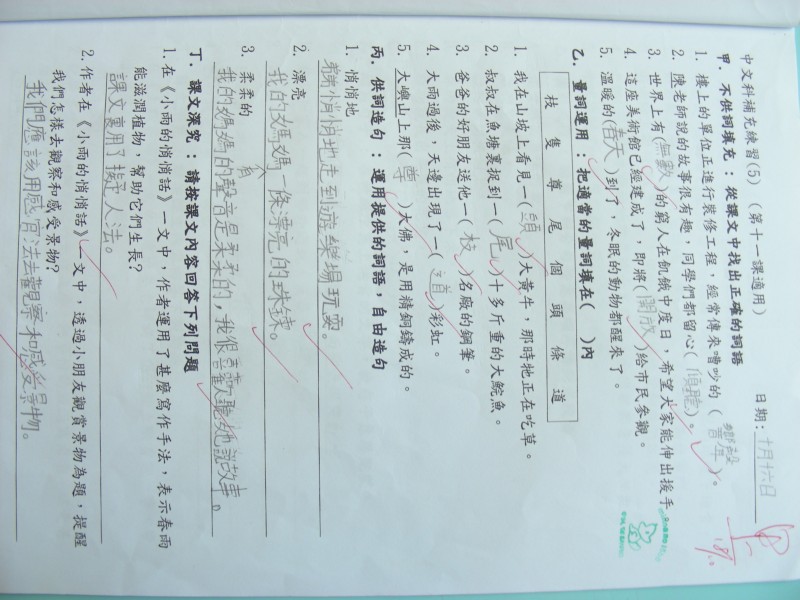 中文科補充練習(5)(第十一課適用)
日期:十月十六日
甲.不供詞填充:從課文中找出正確的詞語
1. 樓上的單位正進行裝修工程,經常傳來嘈吵的(響聲)。
2. 陳老師說的故事很有趣,同學們都留心(傾聽)。
3. 世界上有(無數)的窮人在飢餓中度日,希望大家能伸出援手
4. 這座美術館已經建成了,即將(開放)給市民參觀。
5. 溫暖的(春天)到了,冬眠的動物都醒來了。
乙.量詞運用:把適當的量詞填在( )內
枝 隻 尊 尾 個 頭 條 道
1. 我在山坡上看見一(頭)大黃牛,那時牠正在吃草。
2. 叔叔在魚塘裏捉到一(尾)十多斤重的大鯇魚。
3. 爸爸的好朋友送他一(枝)名廠的鋼筆。
4. 大雨過後,天邊出現了一(道)彩虹。
5. 大嶼山上那(尊)大佛,是用精銅鑄成的。
丙.供詞造句:運用提供的詞語,自由造句
1. 悄悄地
悄悄地走到遊樂場玩耍。
2. 漂亮
我的媽媽有一條漂亮的珠鍊。
3. 柔柔的
我的媽媽的聲音是柔柔的,我很喜歡聽她說故事。
丁.課文深究:請按課文內容回答下列問題
1. 在《小雨的悄悄話》一文中,作者運用了甚麼寫作手法,表示春雨
能滋潤植物,幫助它們生長?
課文裏用了擬人法。
2. 作者在《小雨的悄悄話》一文中,透過小朋友觀賞景物為題,提醒
我們怎樣去觀察和感受景物?
我們應該用感官法去觀察和感受景物。